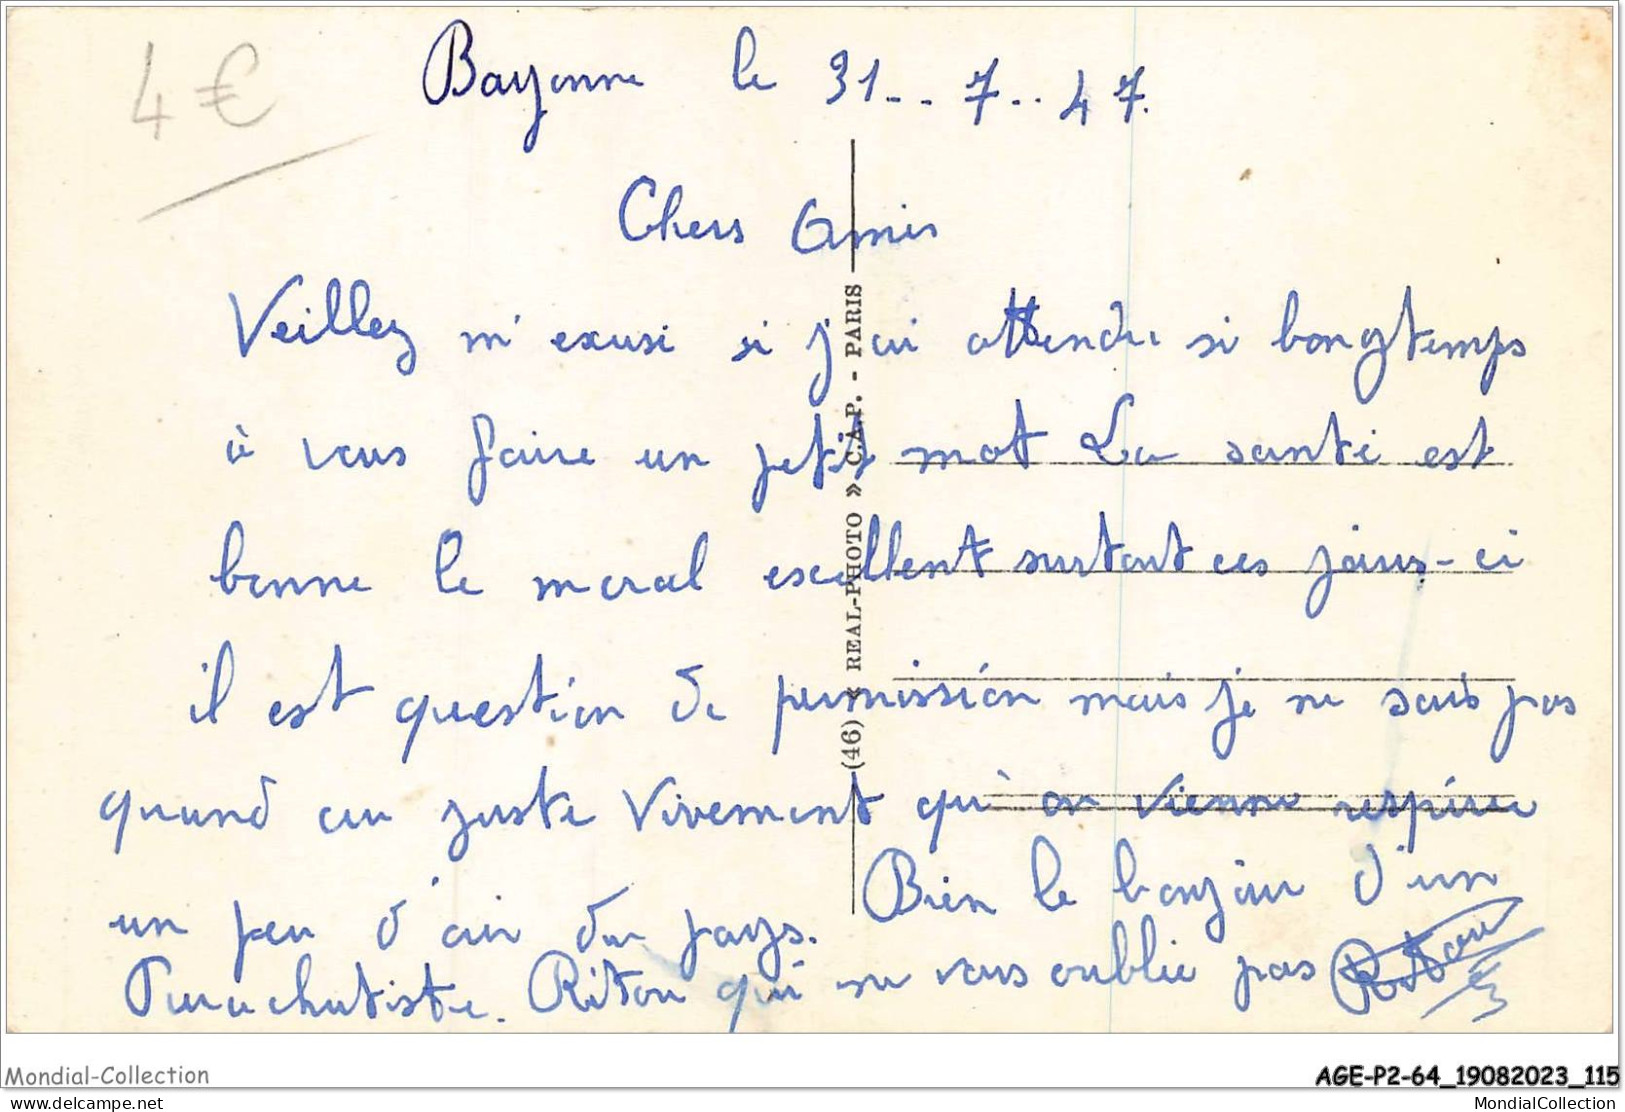 4€
Bayonne le 31-7-47.
Chers Amis
Veillez m'exusé si j'ai attendu si longtemps
à vous faire un petit mot La santé est
bonne le moral excellent surtout ces jours-ci
il est question de permission mais je ne sais pas
quand au juste Vivement qu'on vienne respirer
un peu d'air du pays. Bien le bonjour d'un
Parachutiste. Riton qui ne vous oublie pas Riton
(46) « REAL-PHOTO » C.A.P. - PARIS
Mondial-Collection
AGE-P2-64_19082023_115
delcampe.net
MondialCollection